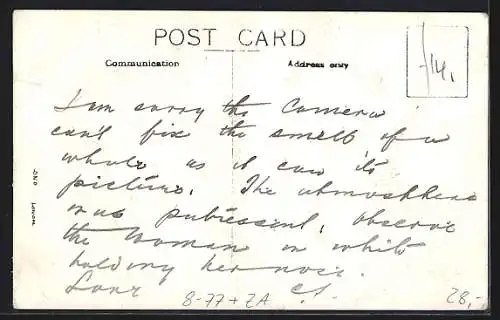 POST CARD
Communication
Address only
14.
I am sorry the camera
can't fix the smell of a
whale as it can its
picture. The atmosphere
was putrescent, observe
the woman in white
holding her nose.
Love
8-77+ZA
28,-